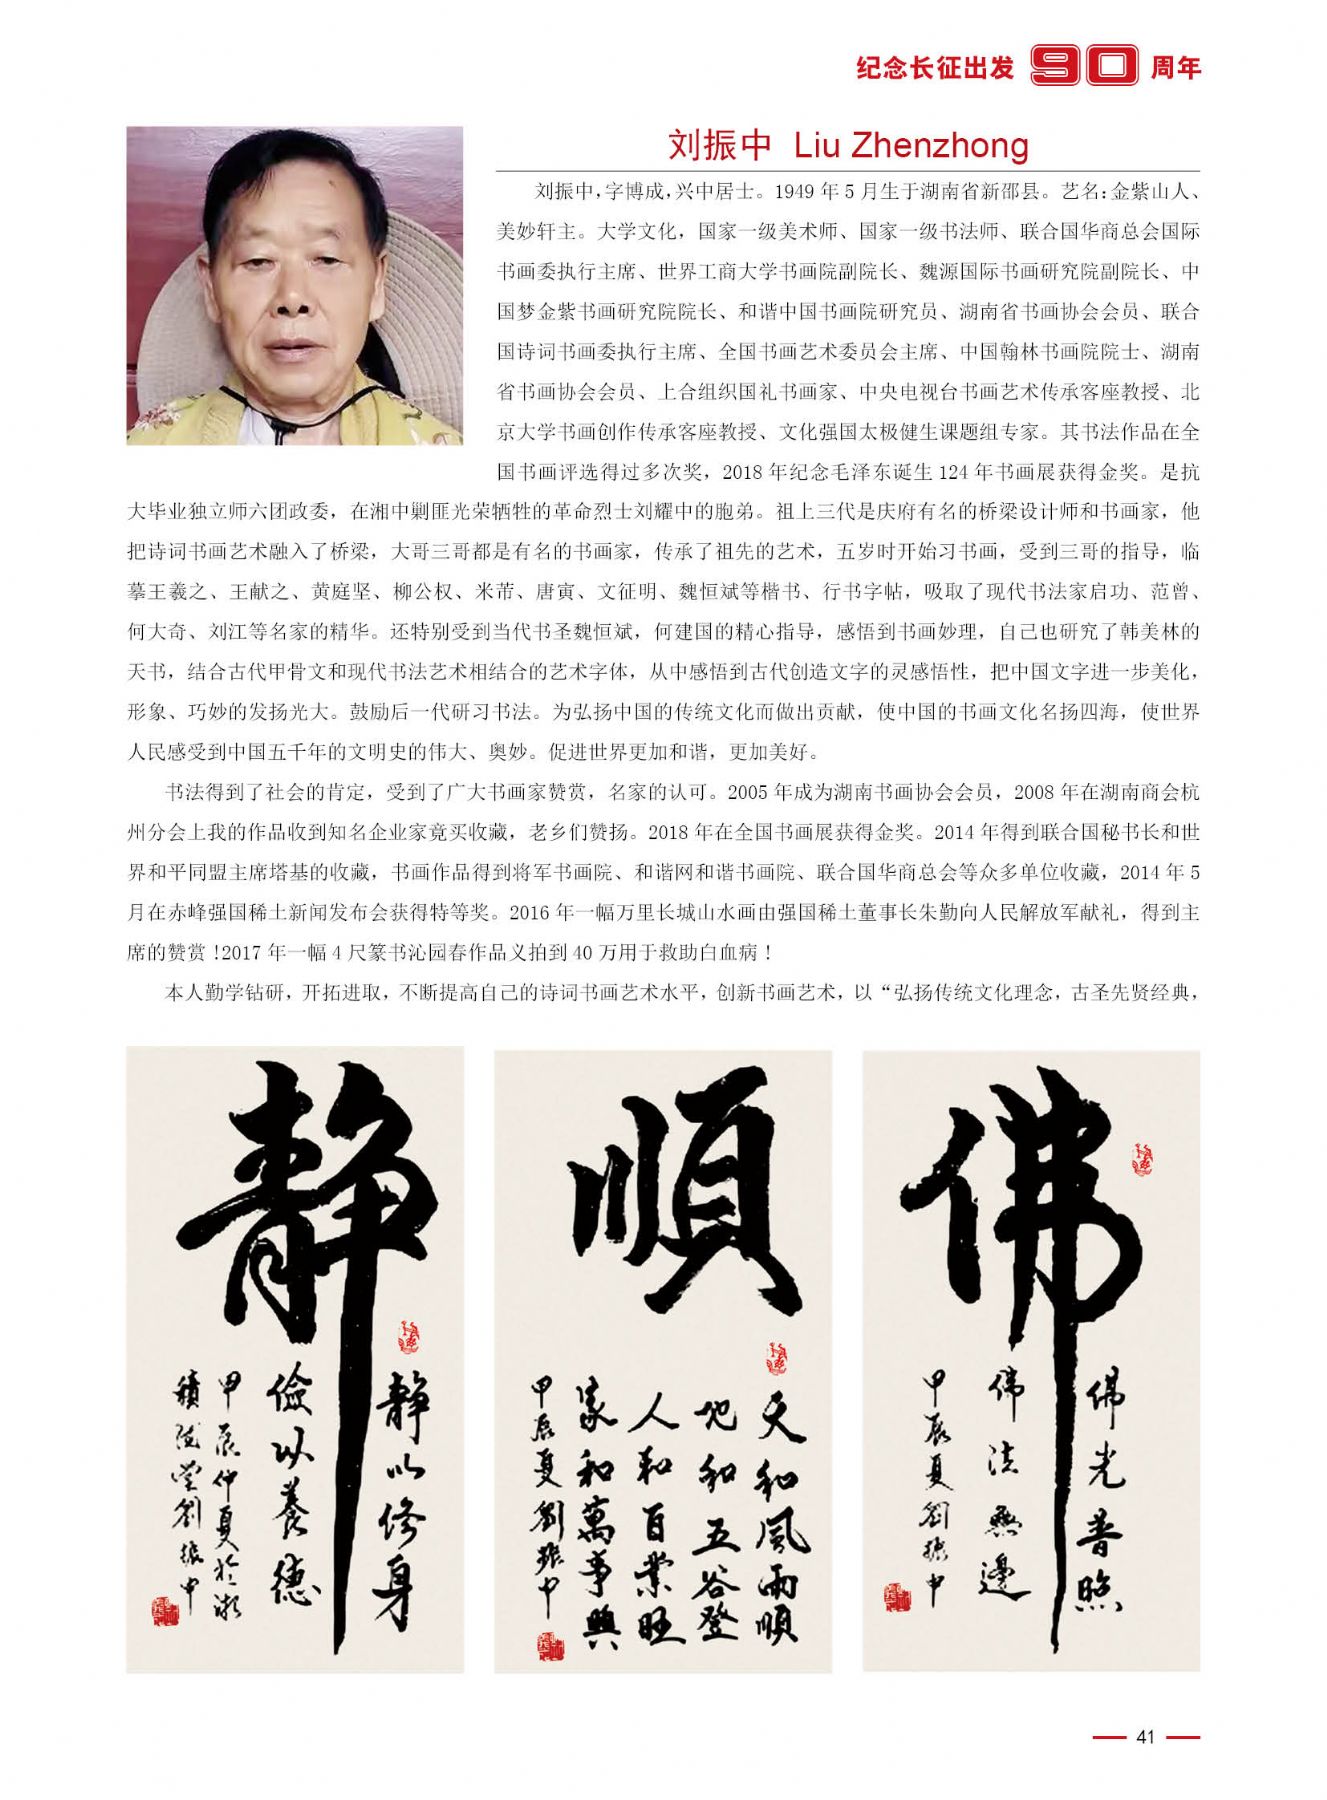 纪念长征出发90周年
刘振中 Liu Zhenzhong
刘振中，字博成，兴中居士。1949年5月生于湖南省新邵县。艺名：金紫山人、
美妙轩主。大学文化，国家一级美术师、国家一级书法师、联合国华商总会国际
书画委执行主席、世界工商大学书画院副院长、魏源国际书画研究院副院长、中
国梦金紫书画研究院院长、和谐中国书画院研究员、湖南省书画协会会员、联合
国诗词书画委执行主席、全国书画艺术委员会主席、中国翰林书画院院士、湖南
省书画协会会员、上合组织国礼书画家、中央电视台书画艺术传承客座教授、北
京大学书画创作传承客座教授、文化强国太极健生课题组专家。其书法作品在全
国书画评选得过多次奖，2018年纪念毛泽东诞生124年书画展获得金奖。是抗
大毕业独立师六团政委，在湘中剿匪光荣牺牲的革命烈士刘耀中的胞弟。祖上三代是庆府有名的桥梁设计师和书画家，他
把诗词书画艺术融入了桥梁，大哥三哥都是有名的书画家，传承了祖先的艺术，五岁时开始习书画，受到三哥的指导，临
摹王羲之、王献之、黄庭坚、柳公权、米芾、唐寅、文征明、魏恒斌等楷书、行书字帖，吸取了现代书法家启功、范曾、
何大奇、刘江等名家的精华。还特别受到当代书圣魏恒斌，何建国的精心指导，感悟到书画妙理，自己也研究了韩美林的
天书，结合古代甲骨文和现代书法艺术相结合的艺术字体，从中感悟到古代创造文字的灵感悟性，把中国文字进一步美化，
形象、巧妙的发扬光大。鼓励后一代研习书法。为弘扬中国的传统文化而做出贡献，使中国的书画文化名扬四海，使世界
人民感受到中国五千年的文明史的伟大、奥妙。促进世界更加和谐，更加美好。
书法得到了社会的肯定，受到了广大书画家赞赏，名家的认可。2005年成为湖南书画协会会员，2008年在湖南商会杭
州分会上我的作品收到知名企业家竟买收藏，老乡们赞扬。2018年在全国书画展获得金奖。2014年得到联合国秘书长和世
界和平同盟主席塔基的收藏，书画作品得到将军书画院、和谐网和谐书画院、联合国华商总会等众多单位收藏，2014年5
月在赤峰强国稀土新闻发布会获得特等奖。2016年一幅万里长城山水画由强国稀土董事长朱勤向人民解放军献礼，得到主
席的赞赏！2017年一幅4尺篆书沁园春作品义拍到40万用于救助白血病！
本人勤学钻研，开拓进取，不断提高自己的诗词书画艺术水平，创新书画艺术，以“弘扬传统文化理念，古圣先贤经典，
静
静以修身
儉以养德
甲辰仲夏於
劉振中
順
天和風雨順
地和五谷登
人和百業旺
家和萬事興
甲辰夏劉振中
佛
佛光普照
佛法無邊
甲辰夏劉振中
41